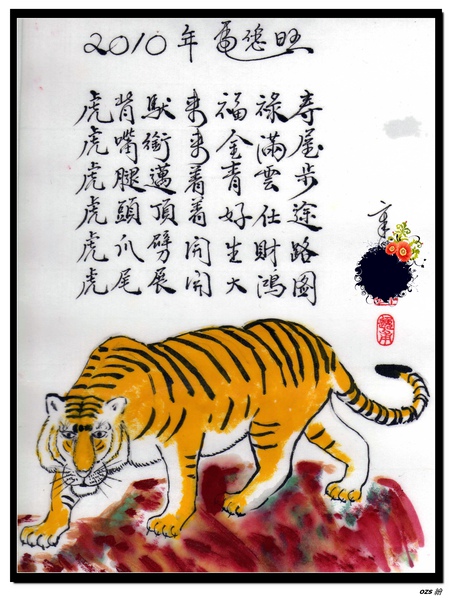 2010年虎旺
虎背馱来福祿壽
虎嘴銜来金滿屋
虎腿邁着青雲步
虎頭頂着好仕途
虎爪劈開生財路
虎尾展開大鴻圖
ozs 繪